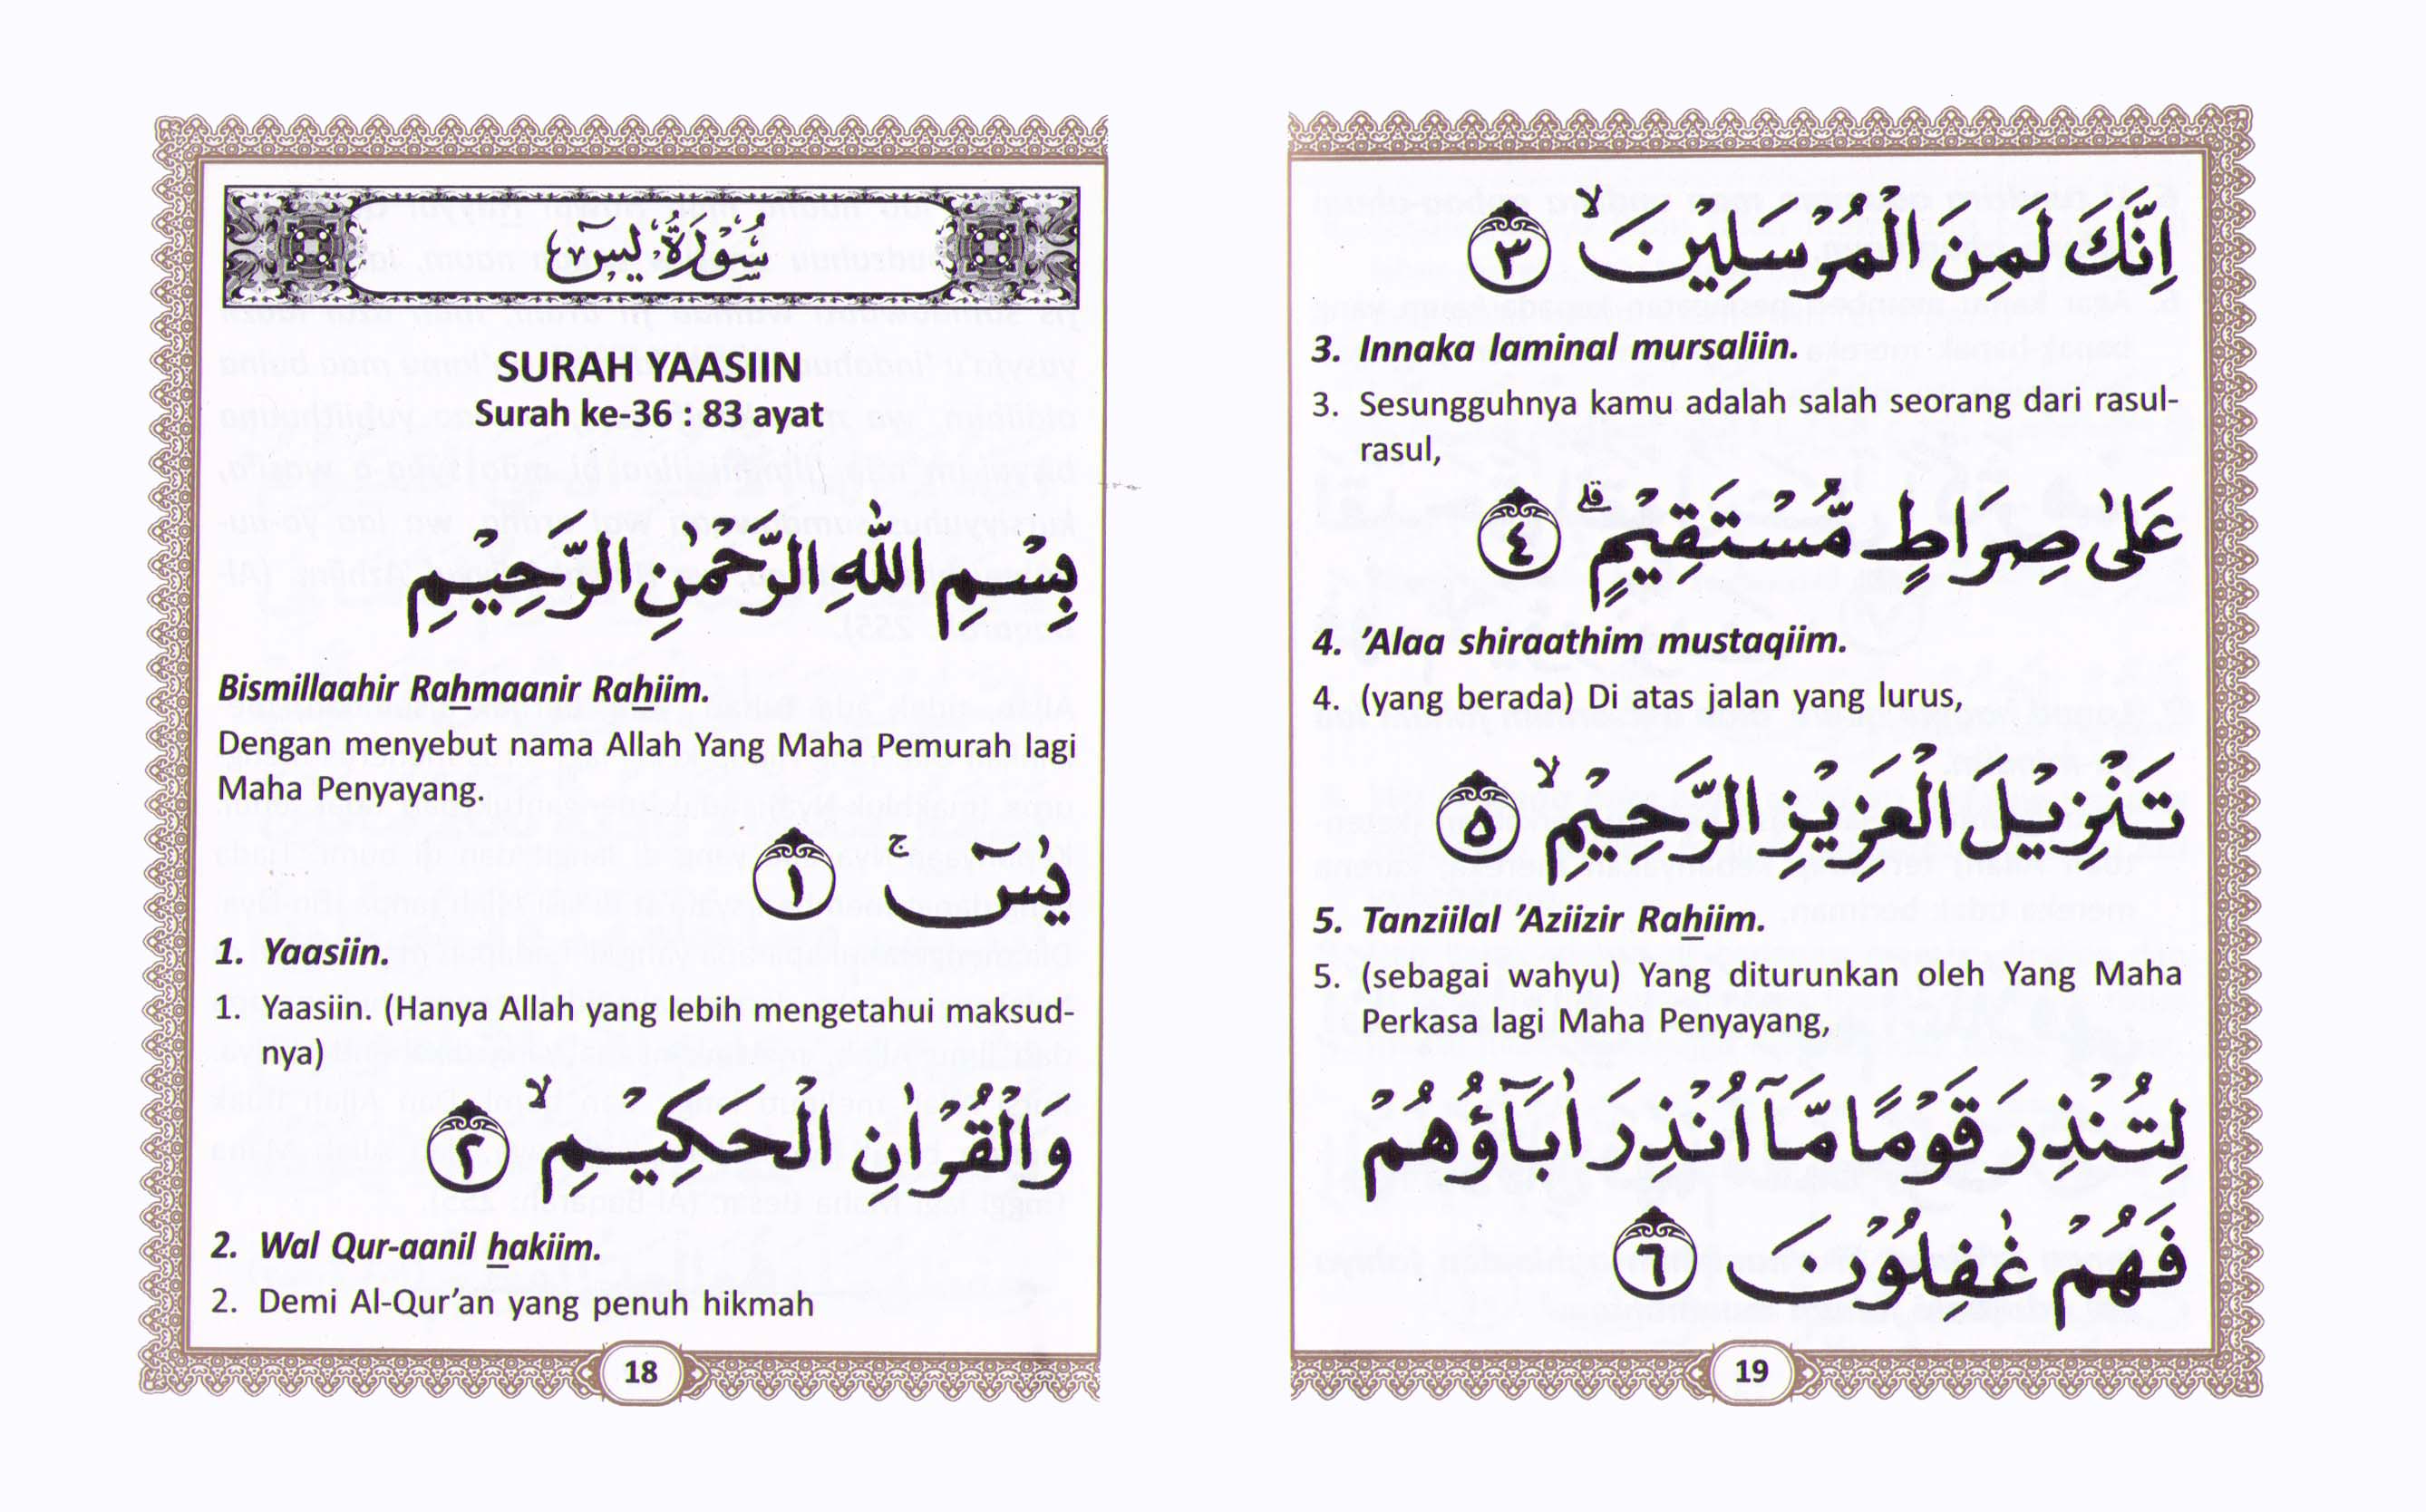 سُوْرَةُ يٰسۤ
SURAH YAASIIN
Surah ke-36 : 83 ayat
بِسْمِ اللّٰهِ الرَّحْمٰنِ الرَّحِيْمِ
Bismillaahir Rahmaanir Rahiim.
Dengan menyebut nama Allah Yang Maha Pemurah lagi
Maha Penyayang.
يٰسۤ ۚ ١
1. Yaasiin.
1. Yaasiin. (Hanya Allah yang lebih mengetahui maksud-
nya)
وَالْقُرْاٰنِ الْحَكِيْمِۙ ٢
2. Wal Qur-aanil hakiim.
2. Demi Al-Qur’an yang penuh hikmah
18
اِنَّكَ لَمِنَ الْمُرْسَلِيْنَۙ ٣
3. Innaka laminal mursaliin.
3. Sesungguhnya kamu adalah salah seorang dari rasul-
rasul,
عَلٰى صِرَاطٍ مُّسْتَقِيْمٍۗ ٤
4. ’Alaa shiraathim mustaqiim.
4. (yang berada) Di atas jalan yang lurus,
تَنْزِيْلَ الْعَزِيْزِ الرَّحِيْمِۙ ٥
5. Tanziilal ’Aziizir Rahiim.
5. (sebagai wahyu) Yang diturunkan oleh Yang Maha
Perkasa lagi Maha Penyayang,
لِتُنْذِرَ قَوْمًا مَّآ اُنْذِرَ اٰبَاۤؤُهُمْ
فَهُمْ غٰفِلُوْنَ ٦
19